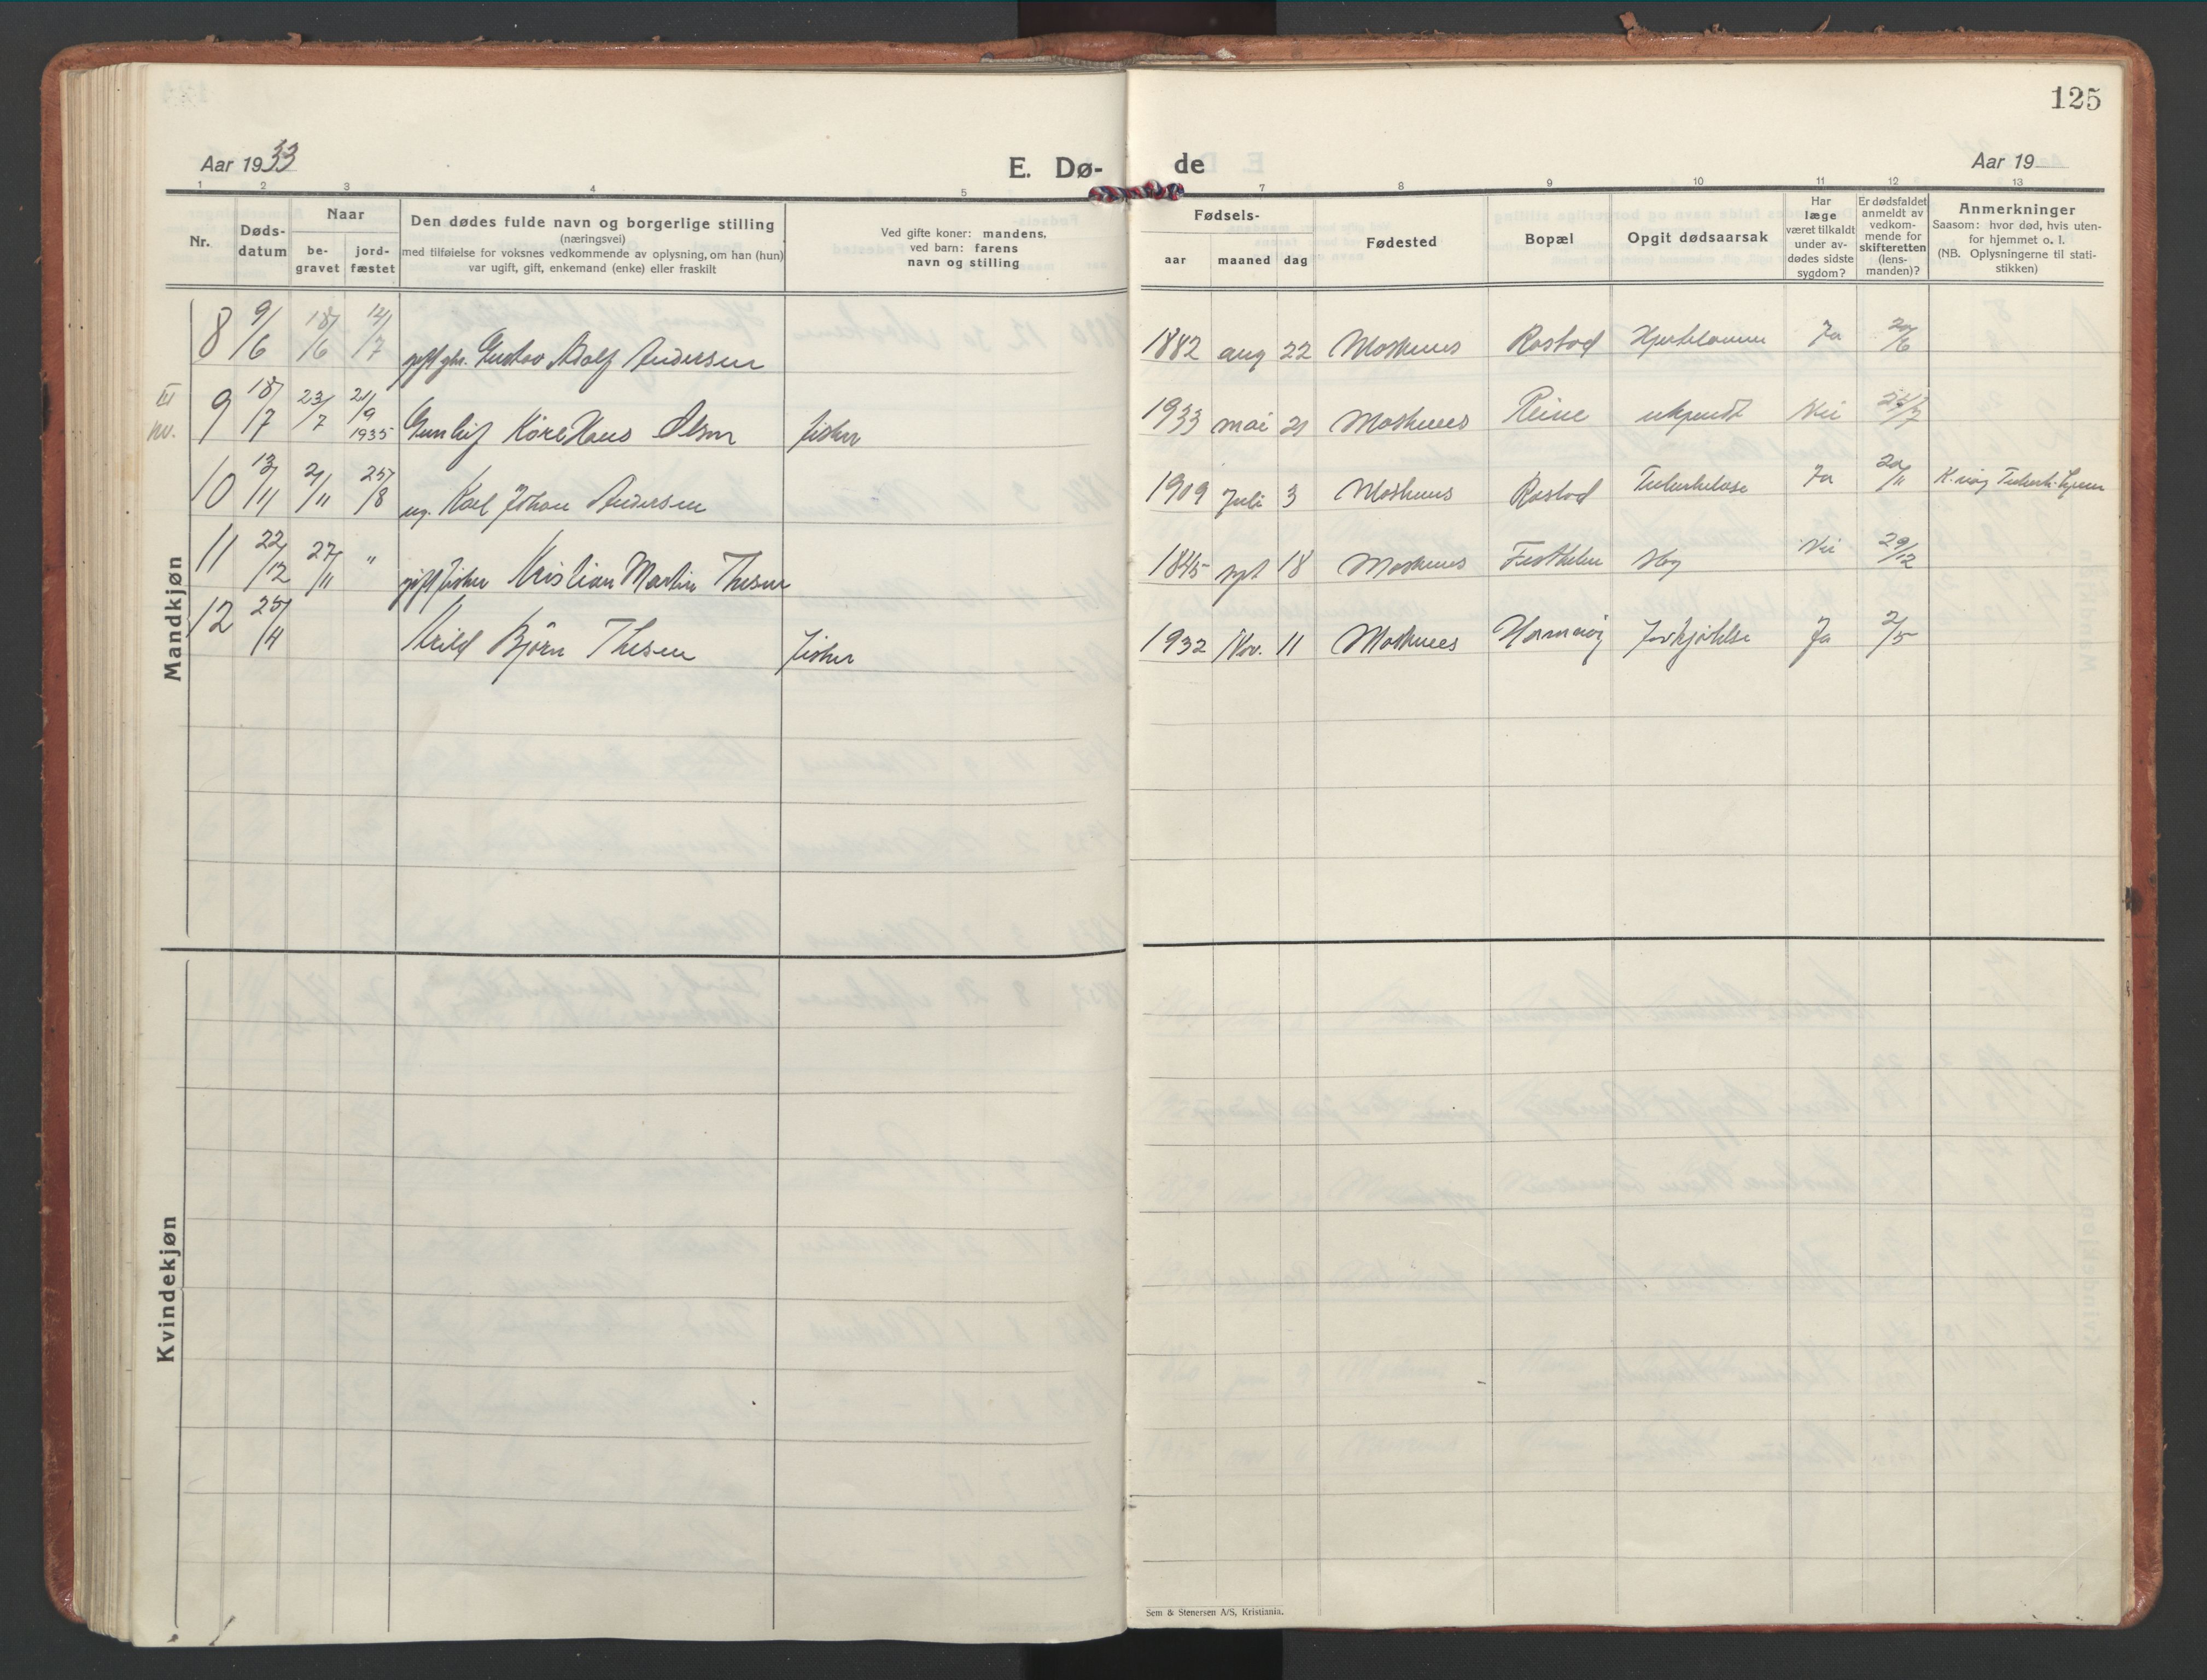 125
Aar 1933
E. Dø-
de
Aar 19
1 2 3 4 5 7 8 9 10 11 12 13
Nr.
Døds-
datum
Naar
be-
gravet
jord-
fæstet
Den dødes fulde navn og borgerlige stilling
(næringsvei)
med tilføielse for voksnes vedkommende av oplysning, om han (hun)
var ugift, gift, enkemand (enke) eller fraskilt
Ved gifte koner: mandens,
ved barn: farens
navn og stilling
Fødsels-
aar maaned dag
Fødested
Bopæl
Opgit dødsaarsak
Har
læge
været tilkaldt
under av-
dødes sidste
sygdom?
Er dødsfaldet
anmeldt av
vedkom-
mende for
skifteretten
(lens-
manden)?
Anmerkninger
Saasom: hvor død, hvis uten-
for hjemmet o. l.
(NB. Oplysningerne til stati-
stikken)
Mandkjøn
8 9/6 18/6 gift Gustav Adolf Andersen 1882 aug 22 Moskenes Rostad Ja 20/6
9 18/7 23/7 21/9 1935 Gunleif Kåre Hans Olsen fisker 1933 mai 21 Moskenes Reine ukjendt Nei
10 13/11 21/11 25/8 ug. Karl Johan Andersen 1909 Juli 3 Moskenes Rostad Tuberkulose Ja 20/11
11 22/12 27/11 " gift fisker Kristian Martin Thesen 1845 sept 18 Moskenes Nei 29/12
12 25/4 Arild Bjørn Thesen fisker 1932 Nov. 11 Moskenes Forkjølelse Ja 2/5
Kvindekjøn
Sem & Stenersen A/S, Kristiania.